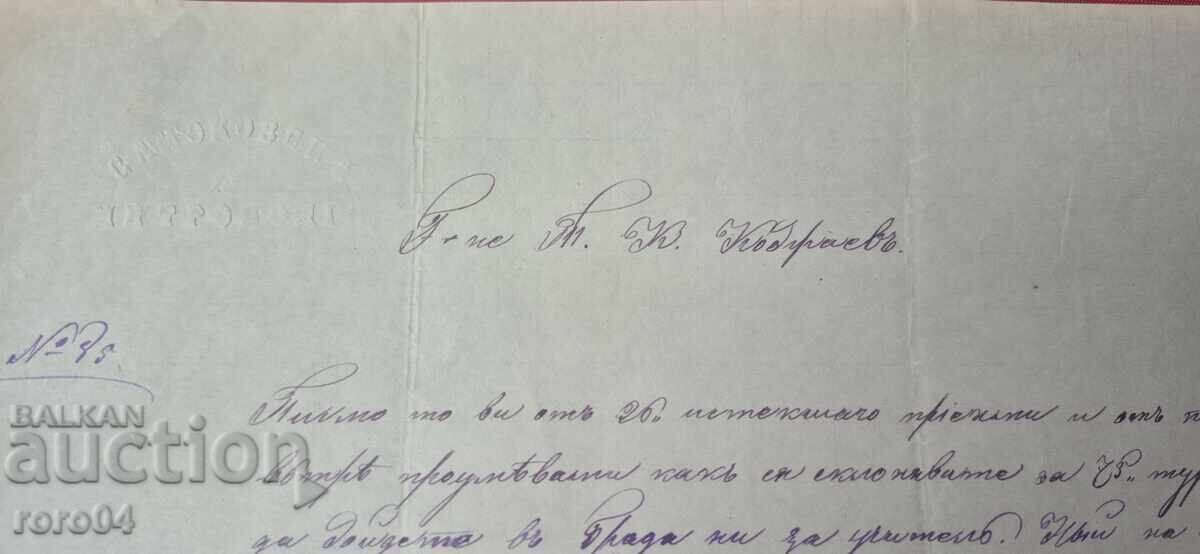 МИТРОПОЛИЯ
Г-не Т. К. Къбраевъ.
№ 85
Писмо то ви отъ 26. истекшаго пріехми и отъ
вътрѣ проумѣвами какъ ся склонявате за 75.. тур
да дойдете въ Града ни за учитель. Ный на
BALKAN
auction
roro04